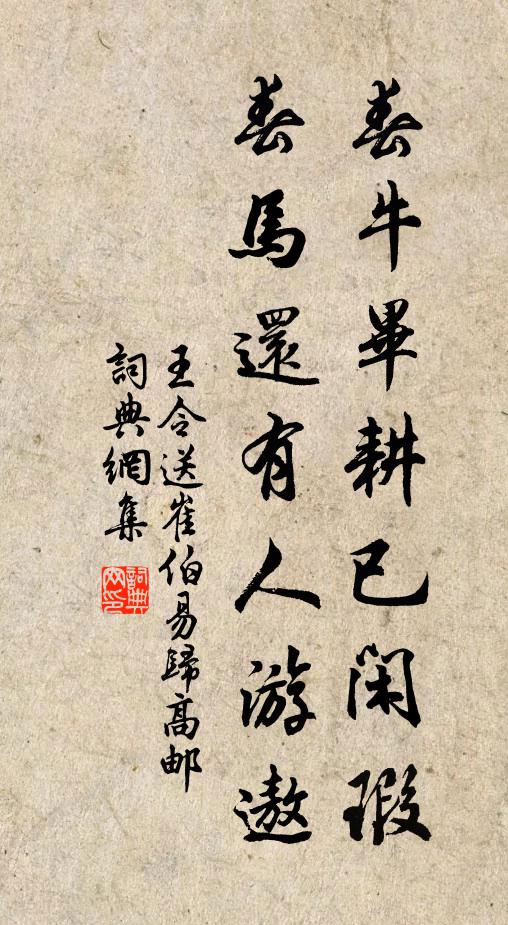 春牛畢耕已閑瑕
春馬還有人游遨
王令送崔伯易歸高邮
詞典網集
詞典网印